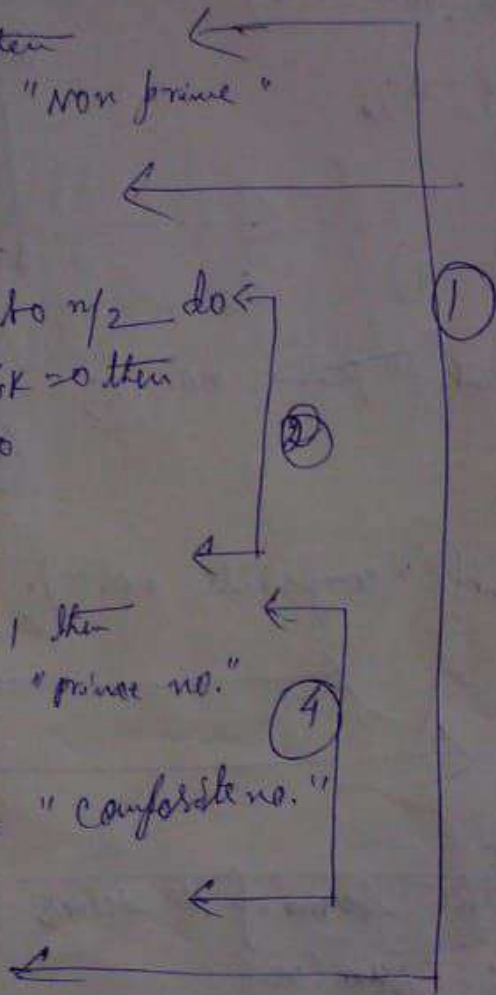 then
"Non prime"
to n/2 do
k = 0 then
1
2
1 then
"prime no."
4
"composite no."